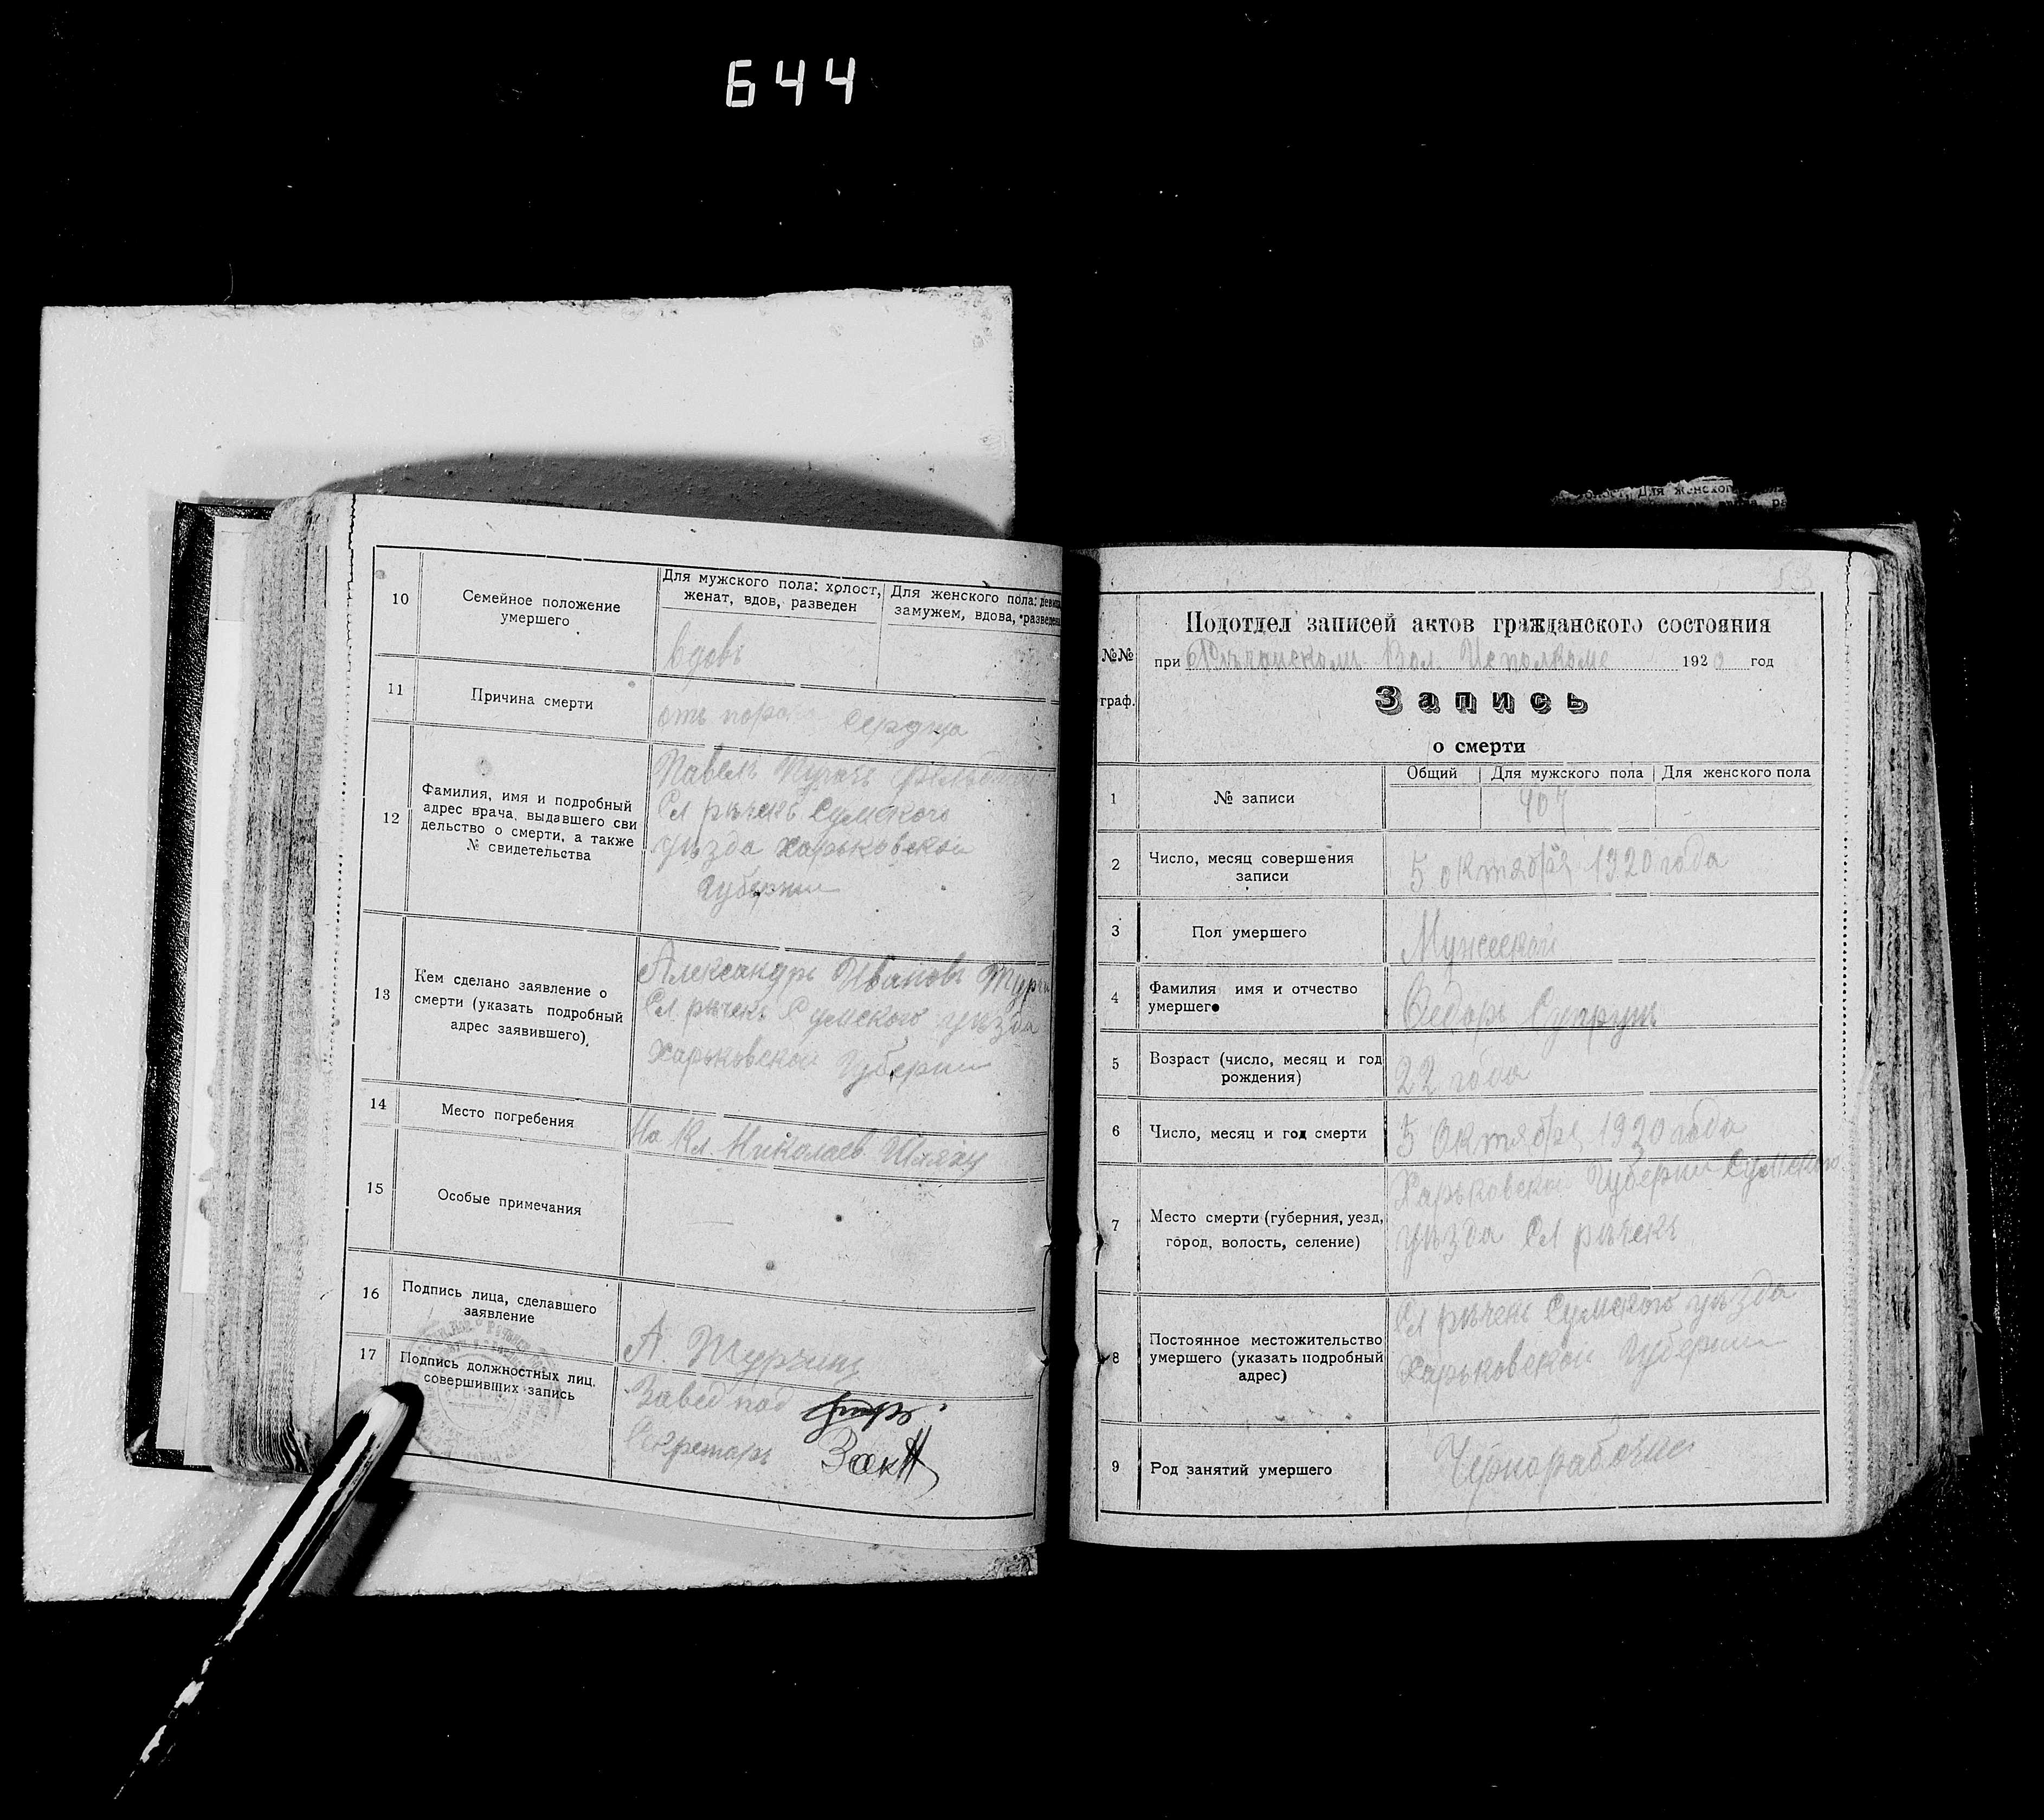 644
10
Семейное положение
умершего
Для мужского пола: холост,
женат, вдов, разведен
Для женского пола:
замужем, вдова,
вдовъ
11
Причина смерти
отъ порока сердца
12
Фамилия, имя и подробный
адрес врача, выдавшего сви
дельство о смерти, а также
№ свидетельства
Павелъ
Сл рѣчекъ Сумского
уѣзда Харьковской
Губернии
13
Кем сделано заявление о
смерти (указать подробный
адрес заявившего).
Александръ Ивановъ
Сл. рѣчекъ Сумского уѣзда
Харьковской Губернии
14
Место погребения
На Кл. Николаев
15
Особые примечания
16
Подпись лица, сделавшего
заявление
А.
17
Подпись должностных лиц,
совершивших запись
Завед под
Секретарь
Для женского
№№
граф.
Подотдел записей актов гражданского состояния
при Вол. Исполкоме 1920 год
Запись
о смерти
1
№ записи
Общий
Для мужского пола
Для женского пола
407
2
Число, месяц совершения
записи
5 октября 1920 года
3
Пол умершего
Мужеский
4
Фамилия имя и отчество
умершего
Федоръ Супрунъ
5
Возраст (число, месяц и год
рождения)
22 года
6
Число, месяц и год смерти
5 Октября 1920 года
7
Место смерти (губерния, уезд,
город, волость, селение)
Харьковской Губернии Сумского
уѣзда Сл рѣчекъ
8
Постоянное местожительство
умершего (указать подробный
адрес)
Сл рѣчекъ Сумского уѣзда
Харьковской Губернии
9
Род занятий умершего
Чернорабочие